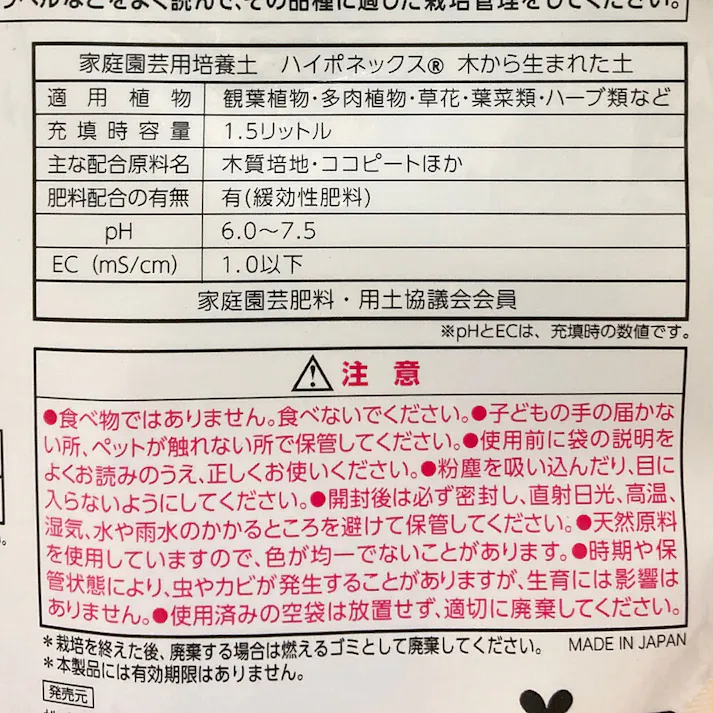 ラベルなどをよく読んで、その品種に適した栽培管理をしてください。
家庭園芸用培養土 ハイポネックス® 木から生まれた土
適用植物 観葉植物・多肉植物・草花・葉菜類・ハーブ類など
充填時容量 1.5リットル
主な配合原料名 木質培地・ココピートほか
肥料配合の有無 有(緩効性肥料)
pH 6.0〜7.5
EC (mS/cm) 1.0以下
家庭園芸肥料・用土協議会会員
※pHとECは、充填時の数値です。
⚠注意
●食べ物ではありません。食べないでください。●子どもの手の届かな
い所、ペットが触れない所で保管してください。●使用前に袋の説明を
よくお読みのうえ、正しくお使いください。●粉塵を吸い込んだり、目に
入らないようにしてください。●開封後は必ず密封し、直射日光、高温、
湿気、水や雨水のかかるところを避けて保管してください。●天然原料
を使用していますので、色が均一でないことがあります。●時期や保
管状態により、虫やカビが発生することがありますが、生育には影響は
ありません。●使用済みの空袋は放置せず、適切に廃棄してください。
*栽培を終えた後、廃棄する場合は燃えるゴミとして廃棄してください。 MADE IN JAPAN
*本製品には有効期限はありません。
発売元